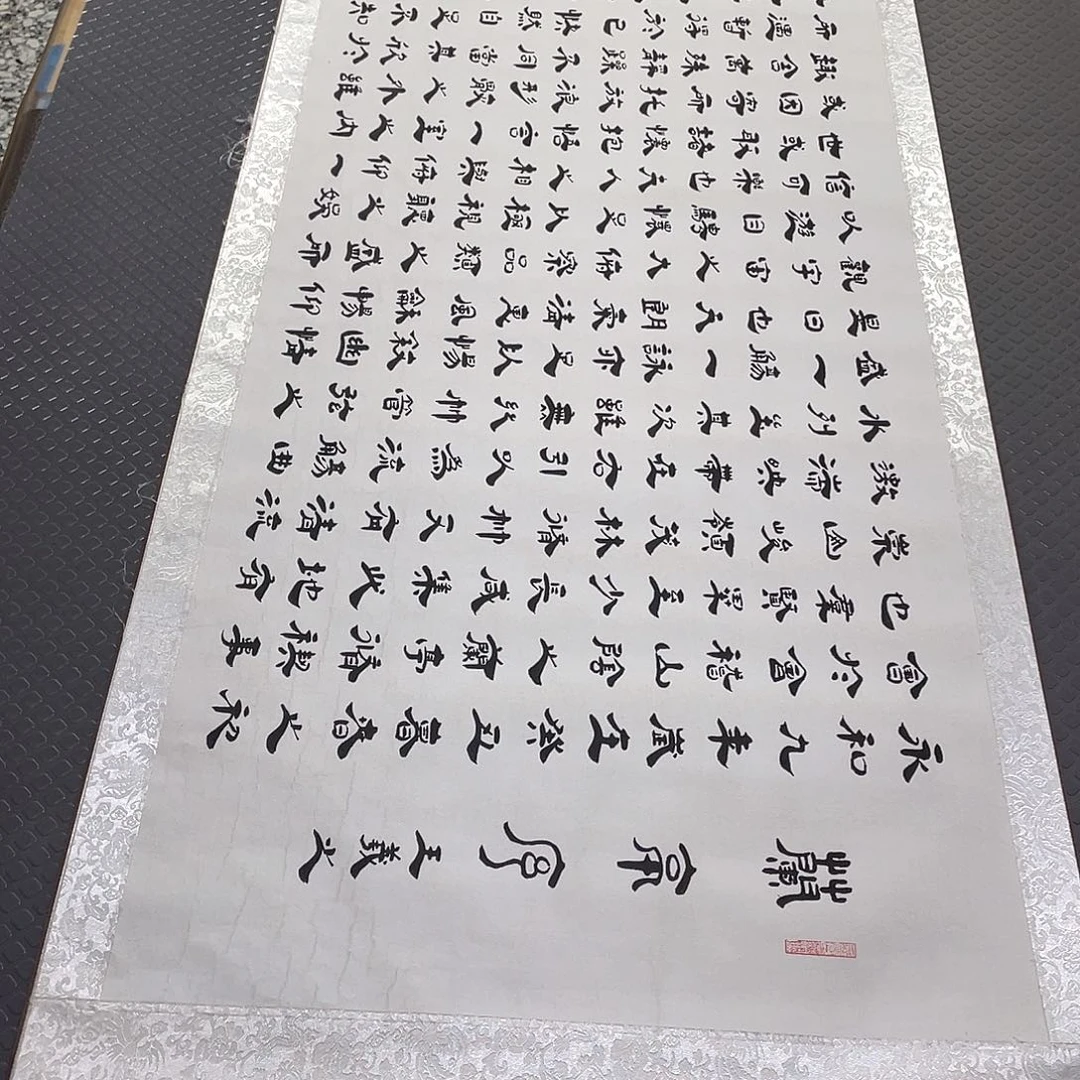 蘭亭序 王羲之
永和九年歲在癸丑暮春之初
會於會稽山陰之蘭亭脩禊事
也羣賢畢至少長咸集此地有
崇山峻領茂林脩竹又有清流
激湍映帶左右引以為流觴曲
水列坐其次雖無絲竹管弦之
盛一觴一詠亦足以暢敘幽情
是日也天朗氣清惠風和暢仰
觀宇宙之大俯察品類之盛所
以遊目騁懷足以極視聽之娛
信可樂也夫人之相與俯仰一
世或取諸懷抱悟言一室之內
或因寄所託放浪形骸之外雖
趣舍萬殊靜躁不同當其欣於
所遇暫得於己快然自足不知